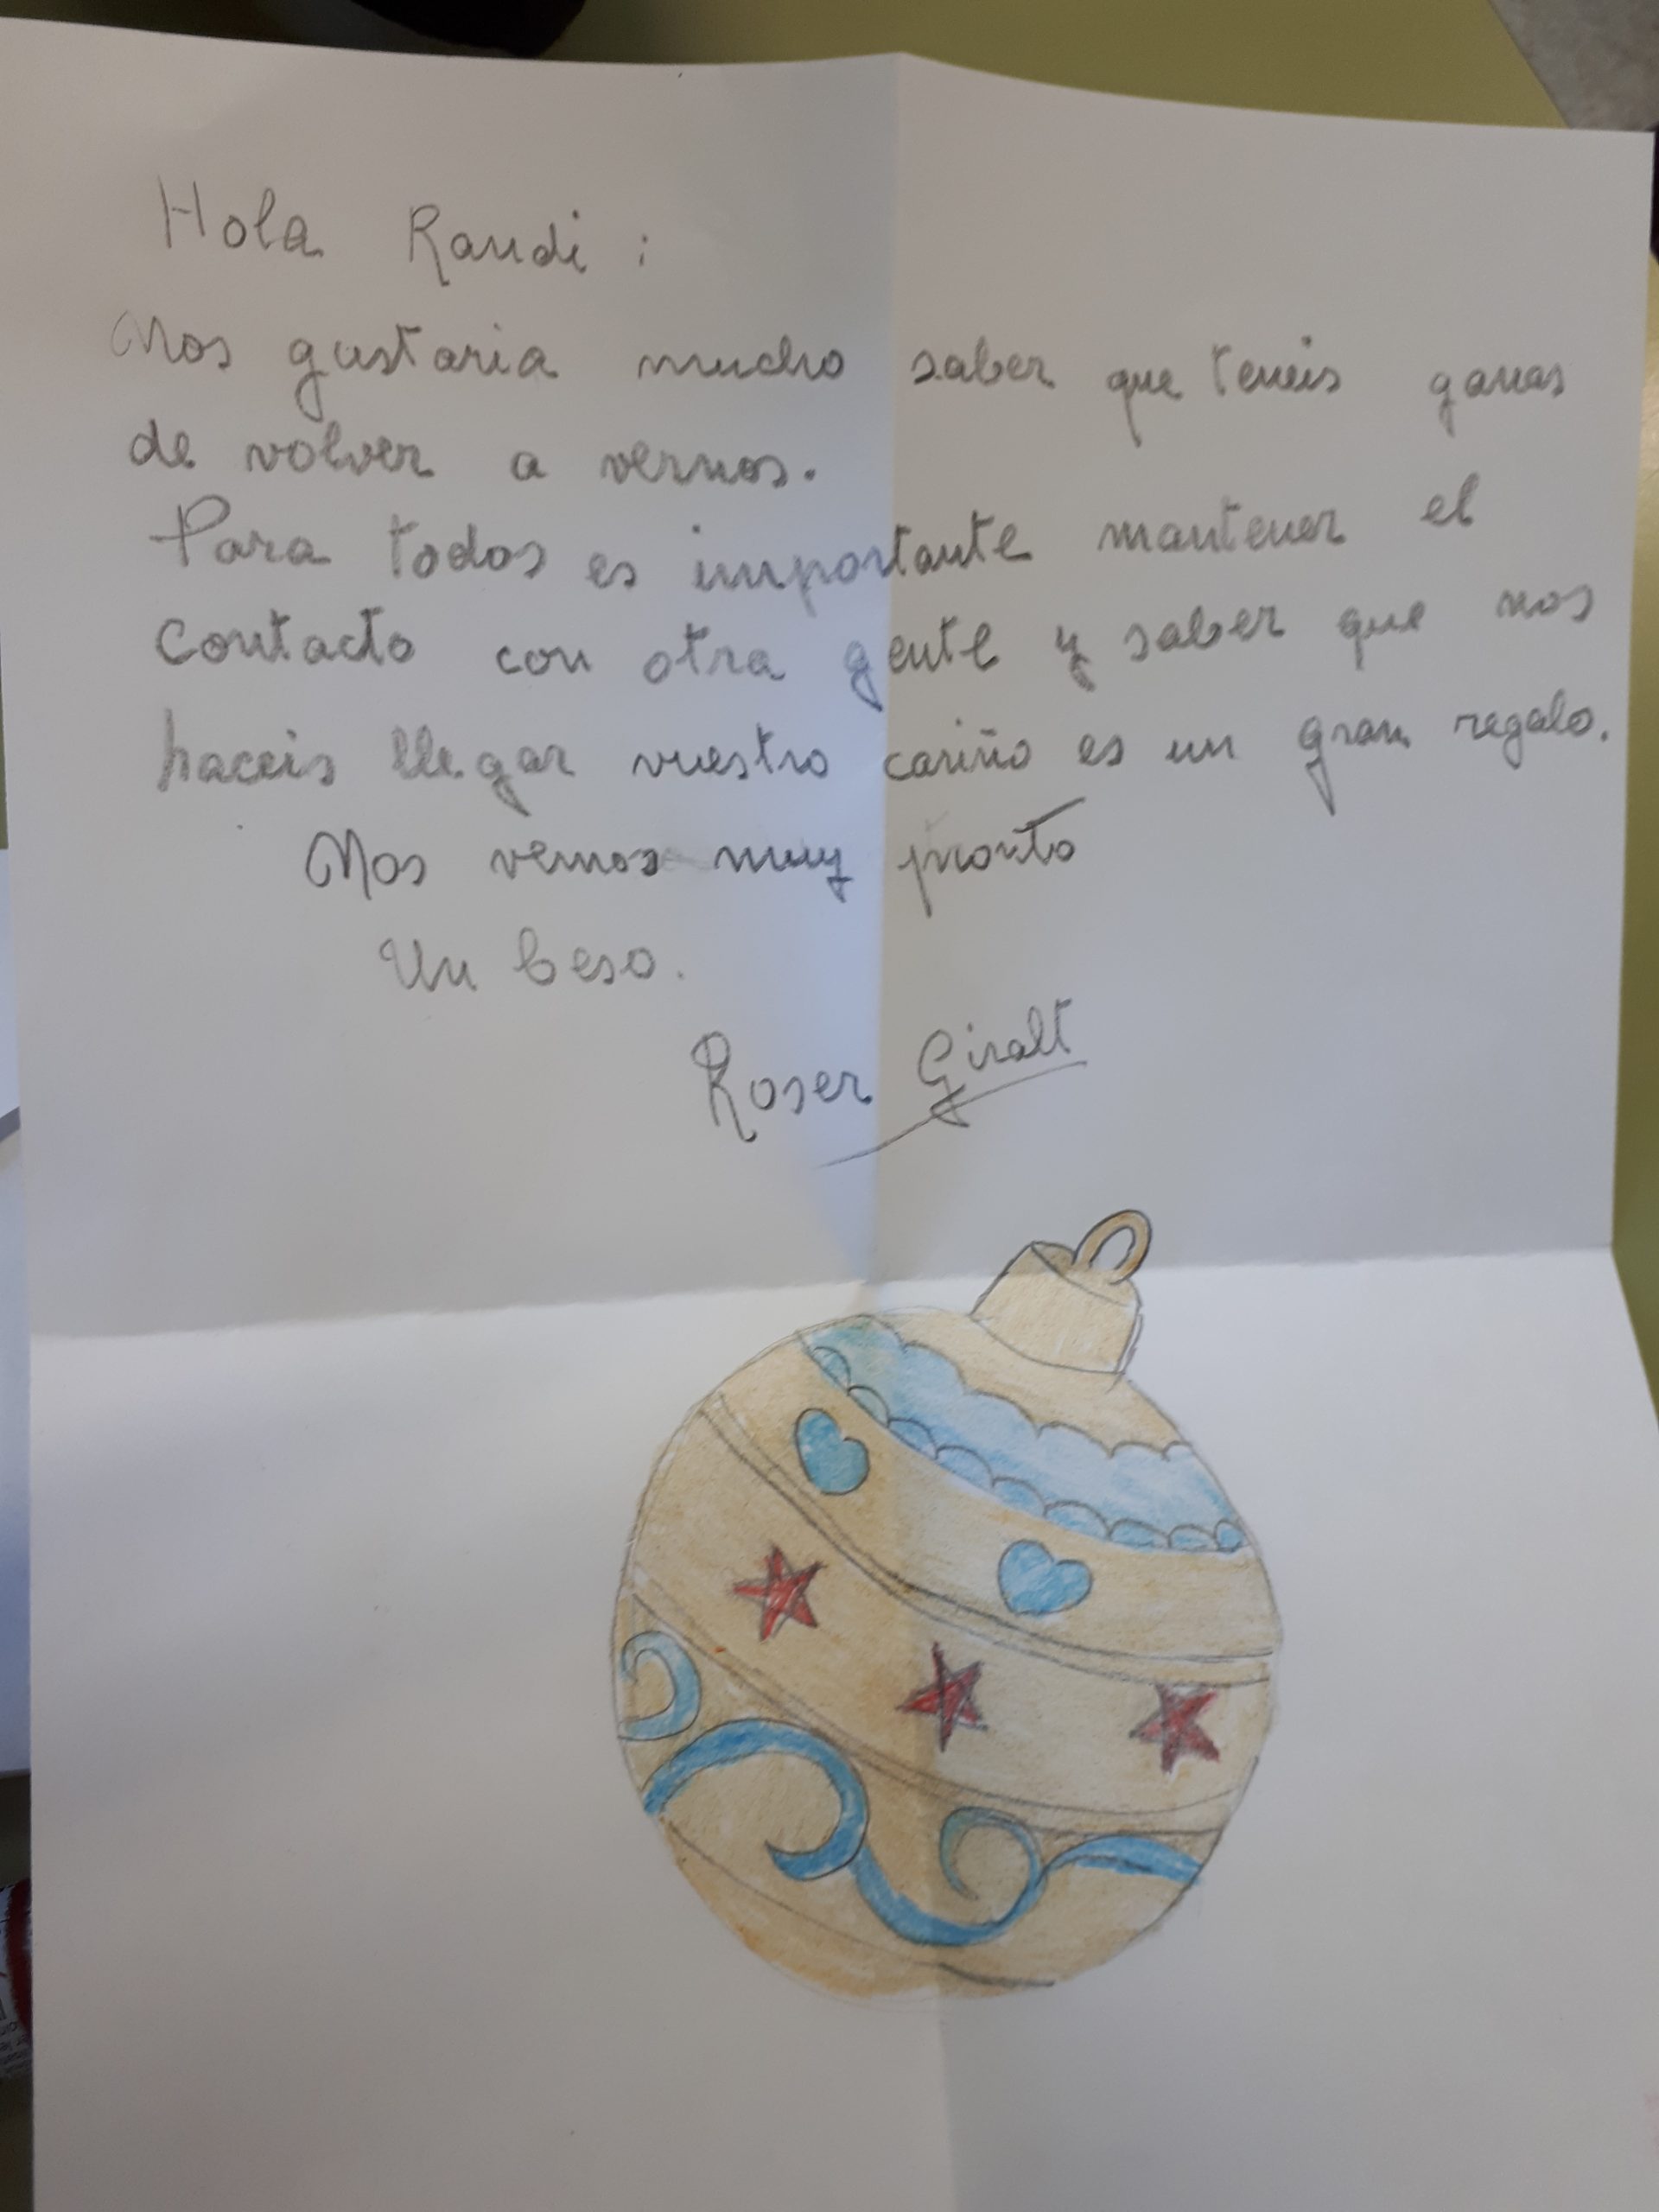 Hola Randi :
Nos gustaria mucho saber que teneis ganas
de volver a vernos.
Para todos es importante mantener el
contacto con otra gente y saber que nos
haceis llegar vuestro cariño es un gran regalo.
Nos vemos muy pronto
Un beso.
Roser Giralt